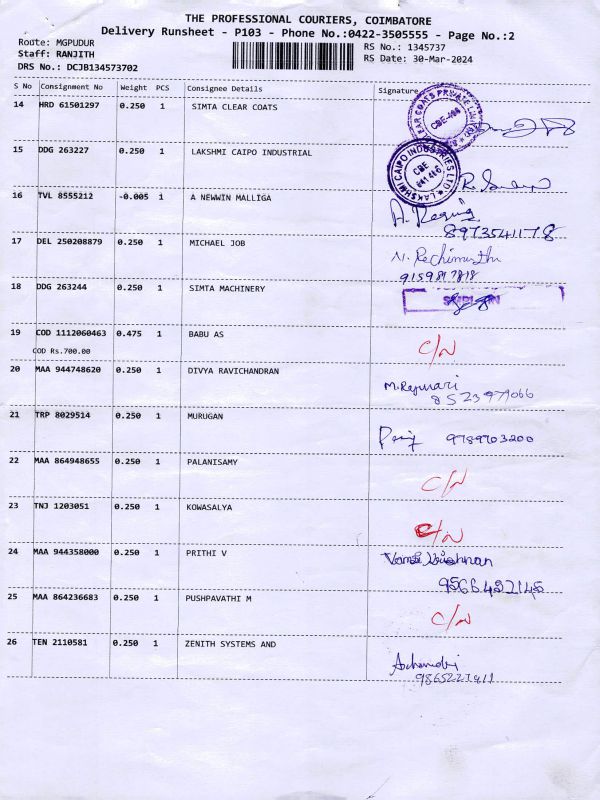 THE PROFESSIONAL COURIERS, COIMBATORE
Delivery Runsheet - P103 - Phone No.:0422-3505555 - Page No.:2
Route: MGPUDUR
RS No.: 1345737
Staff: RANJITH
RS Date: 30-Mar-2024
DRS No.: DCJB134573702
S No Consignment No Weight PCS Consignee Details Signature
14 HRD 61501297 0.250 1 SIMTA CLEAR COATS
15 DDG 263227 0.250 1 LAKSHMI CAIPO INDUSTRIAL
LAKSHMI CAIPO INDUSTRIES LTD
CBE
641 446.
16 TVL 8555212 -0.005 1 A NEWWIN MALLIGA
8973541178
17 DEL 250208879 0.250 1 MICHAEL JOB
9159817818
18 DDG 263244 0.250 1 SIMTA MACHINERY
19 COD 1112060463 0.475 1 BABU AS
C/N
COD Rs.700.00
20 MAA 944748620 0.250 1 DIVYA RAVICHANDRAN
8523979066
21 TRP 8029514 0.250 1 MURUGAN
9789703200
22 MAA 864948655 0.250 1 PALANISAMY
C/N
23 TNJ 1203051 0.250 1 KOWASALYA
C/N
24 MAA 944358000 0.250 1 PRITHI V
9566452145
25 MAA 864236683 0.250 1 PUSHPAVATHI M
C/N
26 TEN 2110581 0.250 1 ZENITH SYSTEMS AND